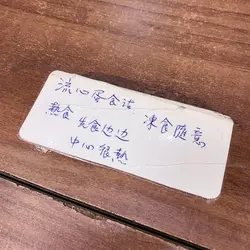 流心蛋食法
熱食 先食边边 凍食隨意
中心很熱